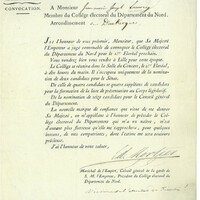 CONVOCATION.
A Monsieur
Membre du Collége électoral du Département du Nord.
Arrondissement
J'ai l'honneur de vous prévenir, Monsieur, que Sa Majesté
l'Empereur a jugé convenable de convoquer le Collége électoral du
Département du Nord pour le 1.er Floréal prochain.
Vous voudrez bien vous rendre à Lille pour cette époque.
Le Collége se réunira dans la Salle du Concert, le 1.er Floréal,
à dix heures du matin. Il s'occupera uniquement de la nomination
de deux candidats pour le Sénat.
De celle de quatre candidats et quatre suppléans de candidats
pour la formation de la liste de présentation au Corps législatif;
Et de la nomination de candidats pour le Conseil général
du Département.
La nouvelle marque de confiance que vient de me donner
Sa Majesté, en m'appelant à l'honneur de présider le Collége
électoral du Département qui m'a vu naître,
d'autant plus flatteuse qu'elle me rapproche, pour quelques
instans, de mes concitoyens, dont l'estime et l'amitié me seront
toujours précieuses.
J'ai l'honneur de vous saluer,
Maréchal de l'Empire, Colonel général de la garde de
S. M. l'Empereur, Président du Collége électoral du
Département du Nord.